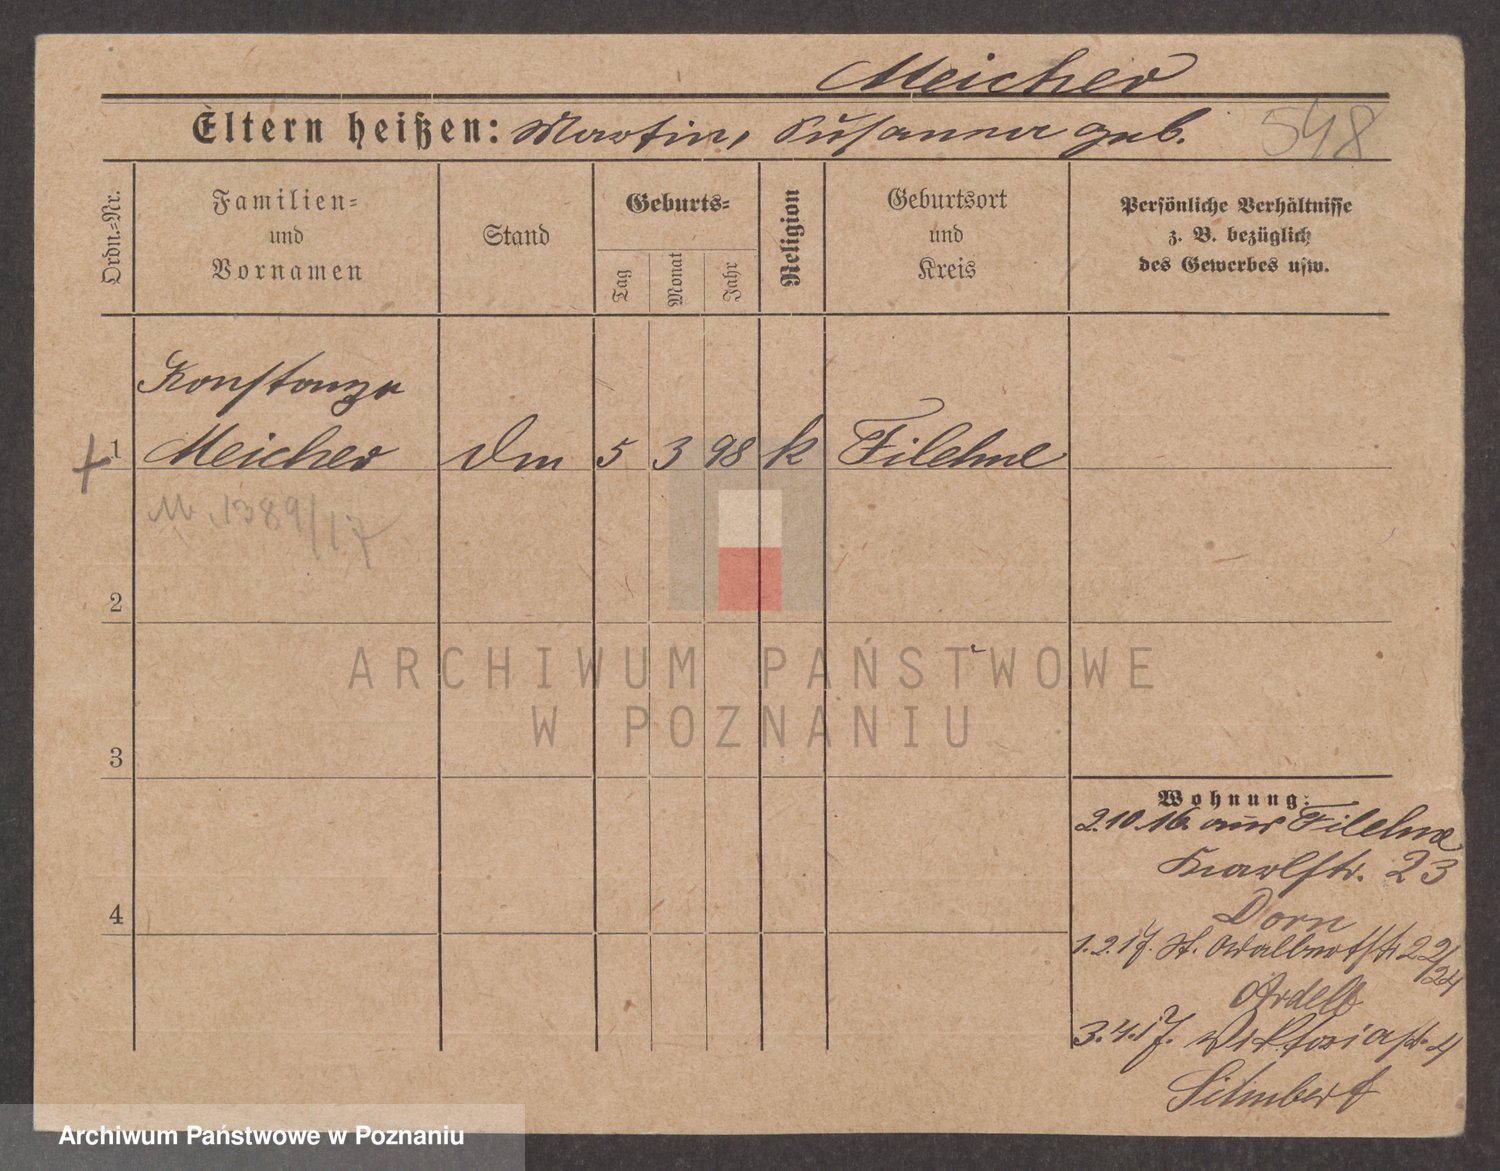 Meicher
Eltern heißen: Martin, Susanna geb.
548
Ordn.=Nr.
Familien=
und
Vornamen
Stand
Geburts=
Tag
Monat
Jahr
Religion
Geburtsort
und
Kreis
Persönliche Verhältnisse
z. B. bezüglich
des Gewerbes usw.
Konstanza
1 Meicher Dm 5 3 98 k Filehne
M. 1389/17
2
3
4
Wohnung:
2.10.16. aus Filehne
Karlstr. 23
Dorn
1.2.17. St. Adalbertstr. 22/24
3.4.17. Viktoriastr. 4
ARCHIWUM PAŃSTWOWE
W POZNANIU
Archiwum Państwowe w Poznaniu